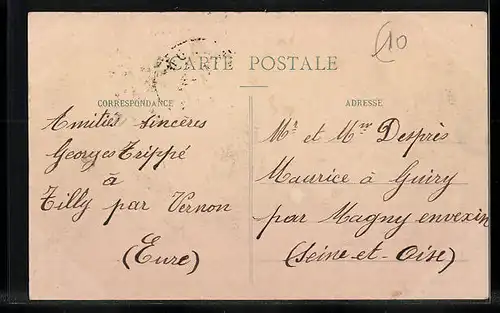 10
CARTE POSTALE
CORRESPONDANCE
Amitiés Sincères
Georges Trippé
à
Tilly par Vernon
(Eure)
ADRESSE
Mr et Mme Desprès
Maurice à Guiry
par Magny envexin
(Seine-et-Oise)